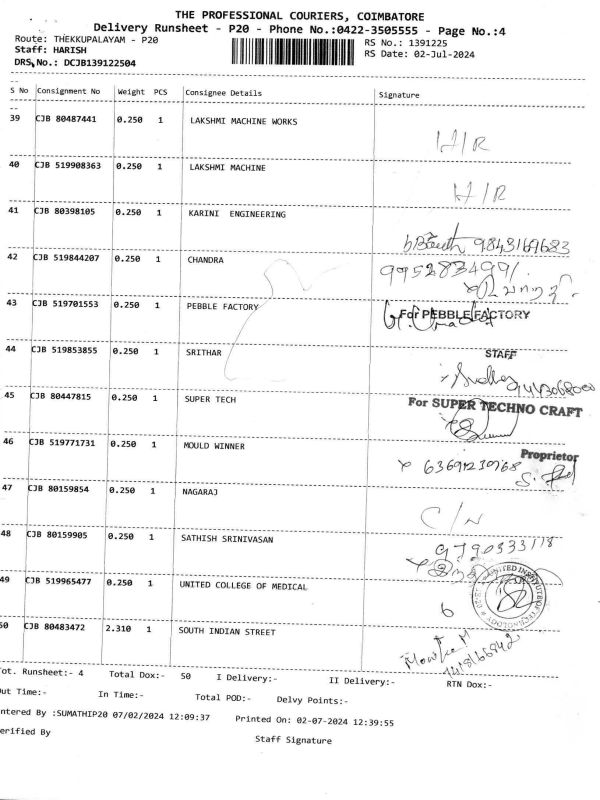 THE PROFESSIONAL COURIERS, COIMBATORE
Delivery Runsheet - P20 - Phone No.:0422-3505555 - Page No.:4
Route: THEKKUPALAYAM - P20
RS No.: 1391225
Staff: HARISH
RS Date: 02-Jul-2024
DRS No.: DCJB139122504
S No Consignment No Weight PCS Consignee Details Signature
39 CJB 80487441 0.250 1 LAKSHMI MACHINE WORKS
H/R
40 CJB 519908363 0.250 1 LAKSHMI MACHINE
H/R
41 CJB 80398105 0.250 1 KARINI ENGINEERING
9843169683
42 CJB 519844207 0.250 1 CHANDRA
9952834991
43 CJB 519701553 0.250 1 PEBBLE FACTORY
For PEBBLE FACTORY
STAFF
44 CJB 519853855 0.250 1 SRITHAR
45 CJB 80447815 0.250 1 SUPER TECH
For SUPER TECHNO CRAFT
Proprietor
46 CJB 519771731 0.250 1 MOULD WINNER
47 CJB 80159854 0.250 1 NAGARAJ
C/N
48 CJB 80159905 0.250 1 SATHISH SRINIVASAN
49 CJB 519965477 0.250 1 UNITED COLLEGE OF MEDICAL
6
50 CJB 80483472 2.310 1 SOUTH INDIAN STREET
Tot. Runsheet:- 4 Total Dox:- 50 I Delivery:- II Delivery:- RTN Dox:-
Out Time:- In Time:- Total POD:- Delvy Points:-
ntered By :SUMATHIP20 07/02/2024 12:09:37 Printed On: 02-07-2024 12:39:55
erified By
Staff Signature